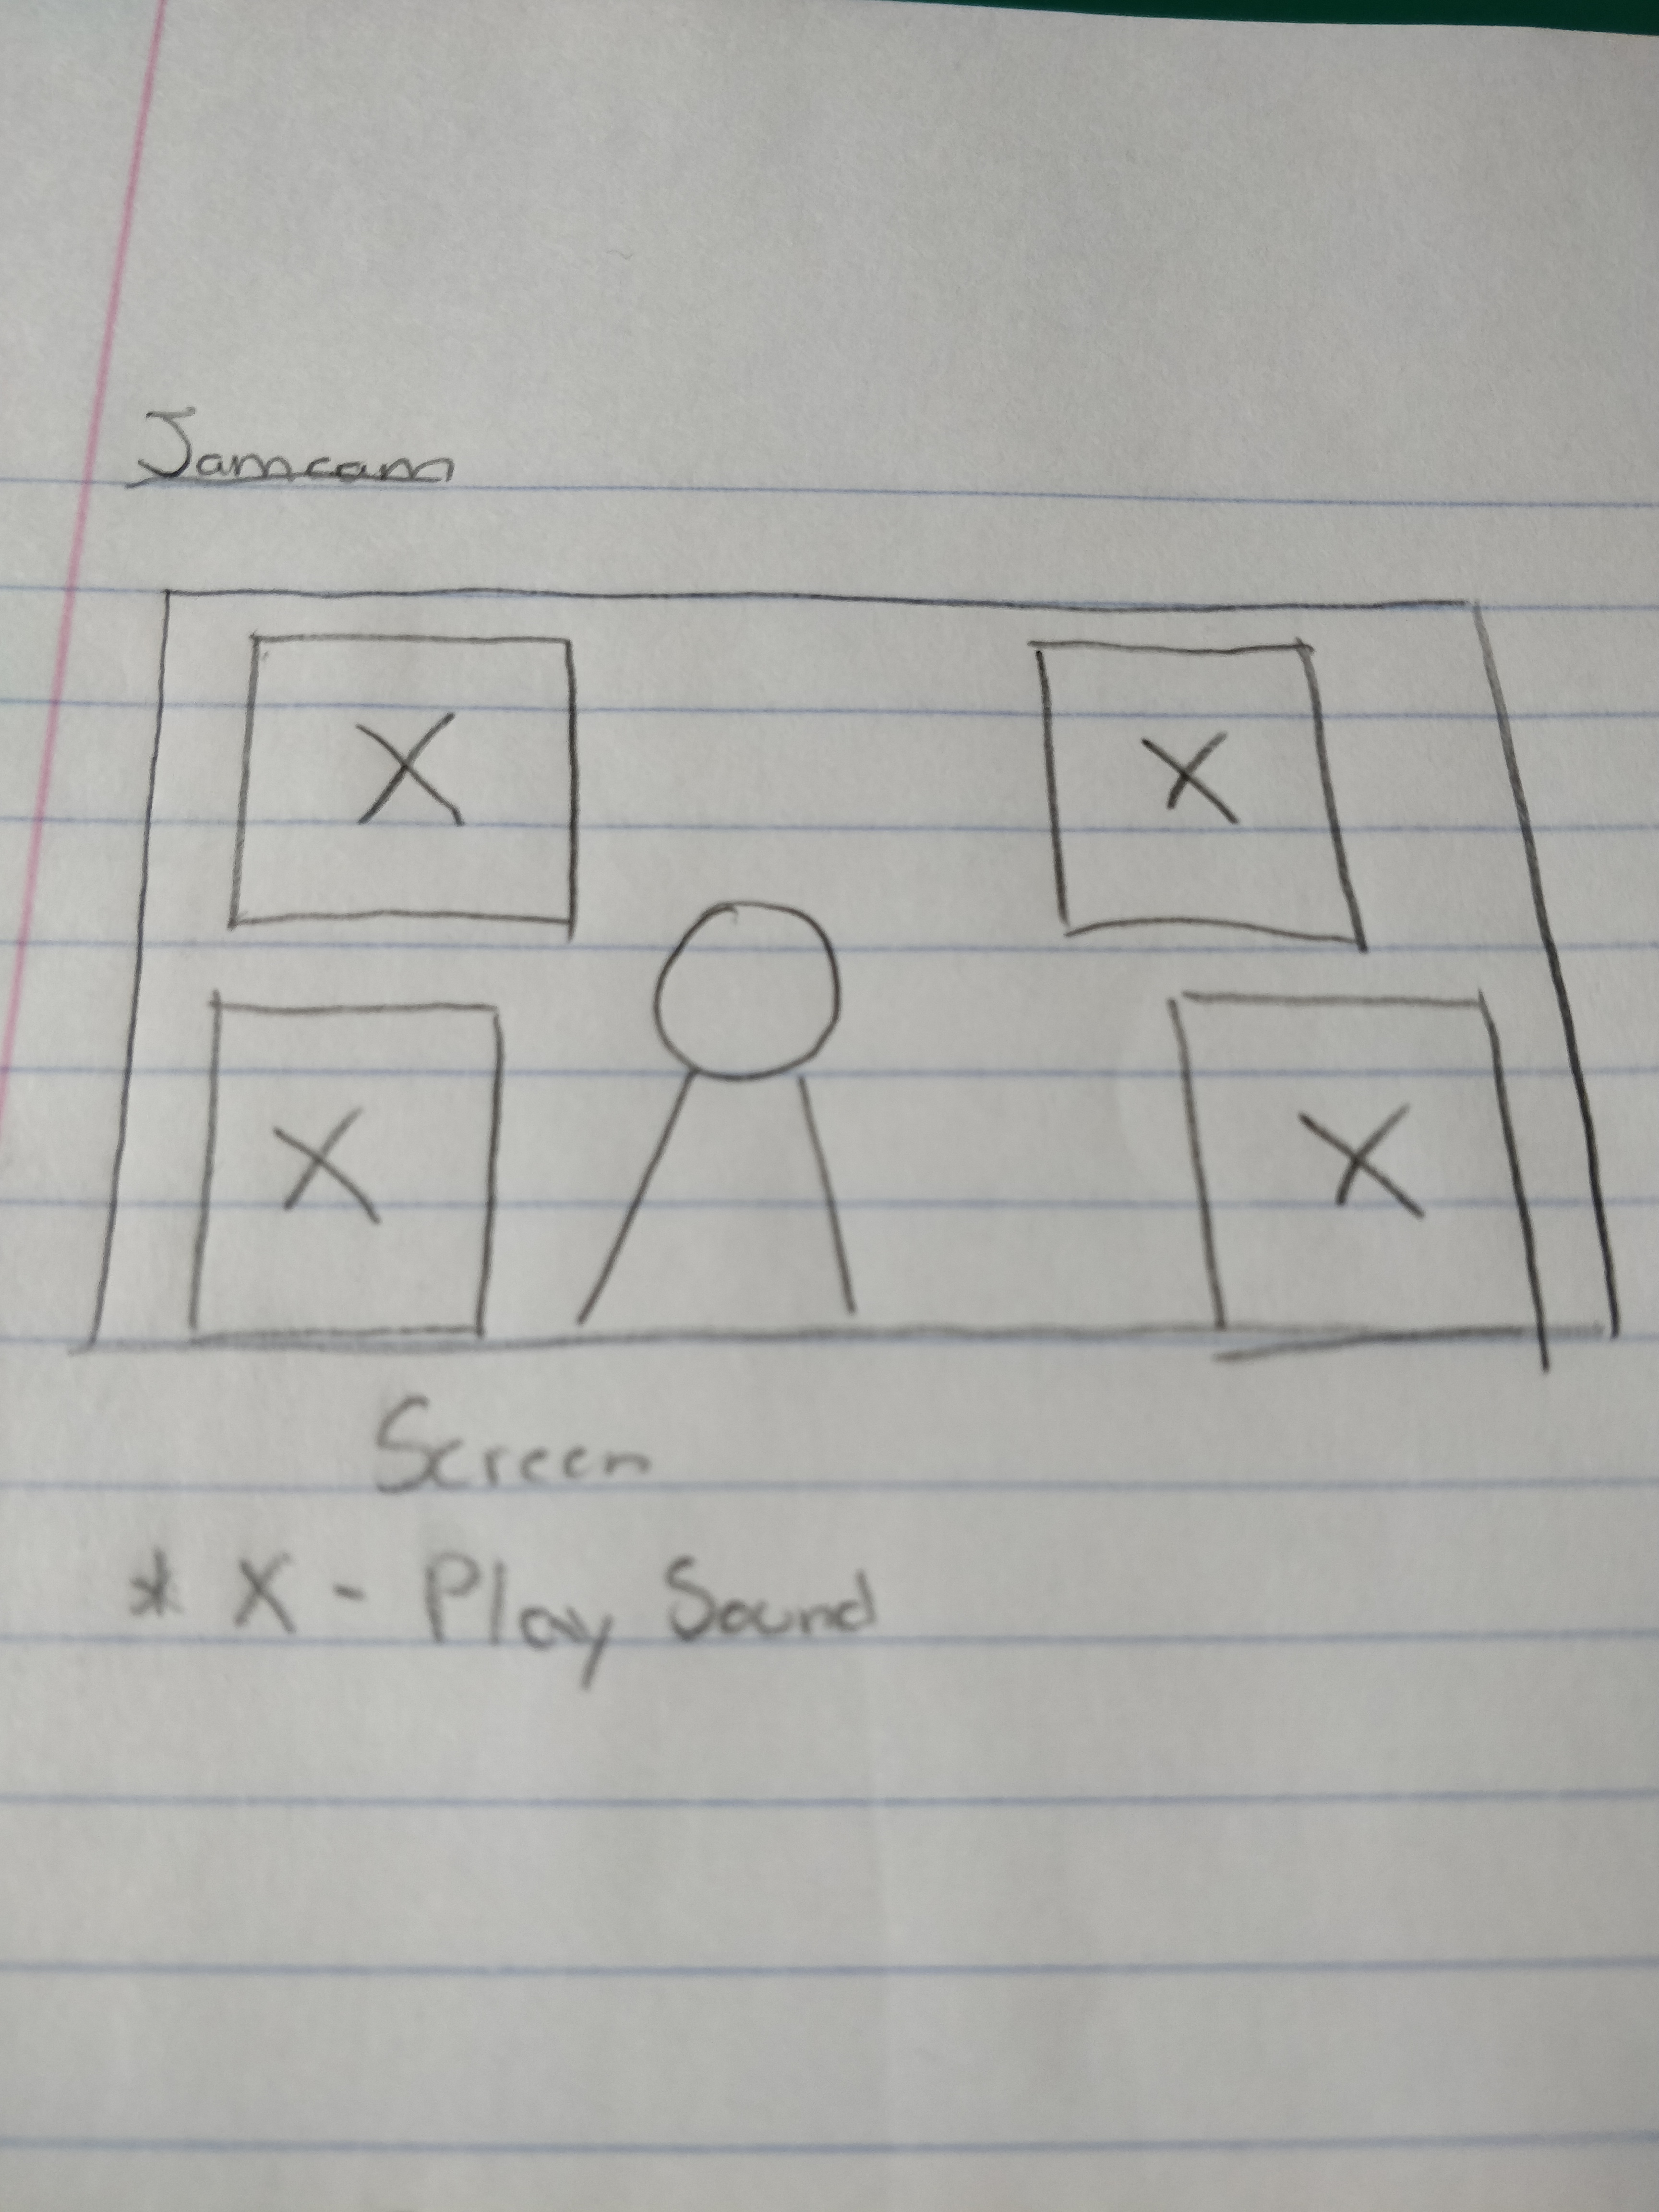 Jamcam
X X
X X
Screen
* X - Play Sound